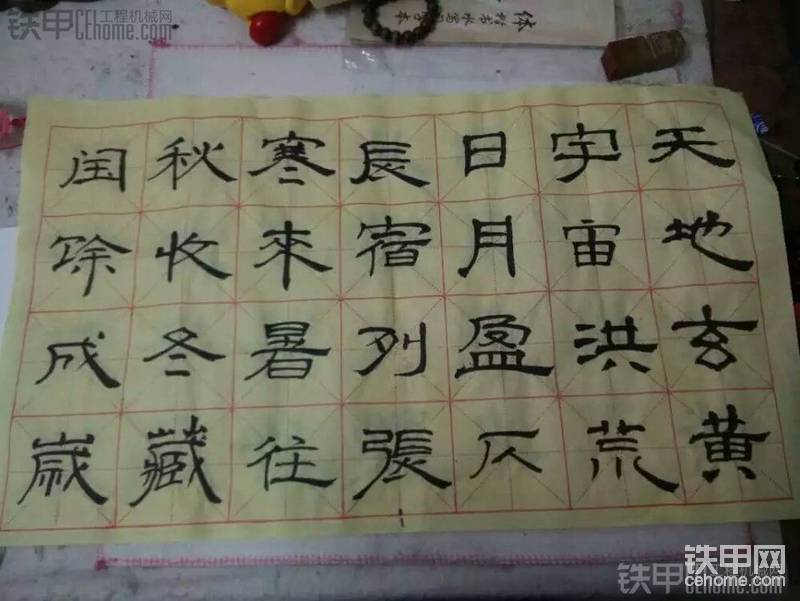 天地玄黄
宇宙洪荒
日月盈仄
辰宿列張
寒來暑往
秋收冬藏
闰馀成歲
铁甲 工程机械网
CEhome.com
铁甲网
cehome.com